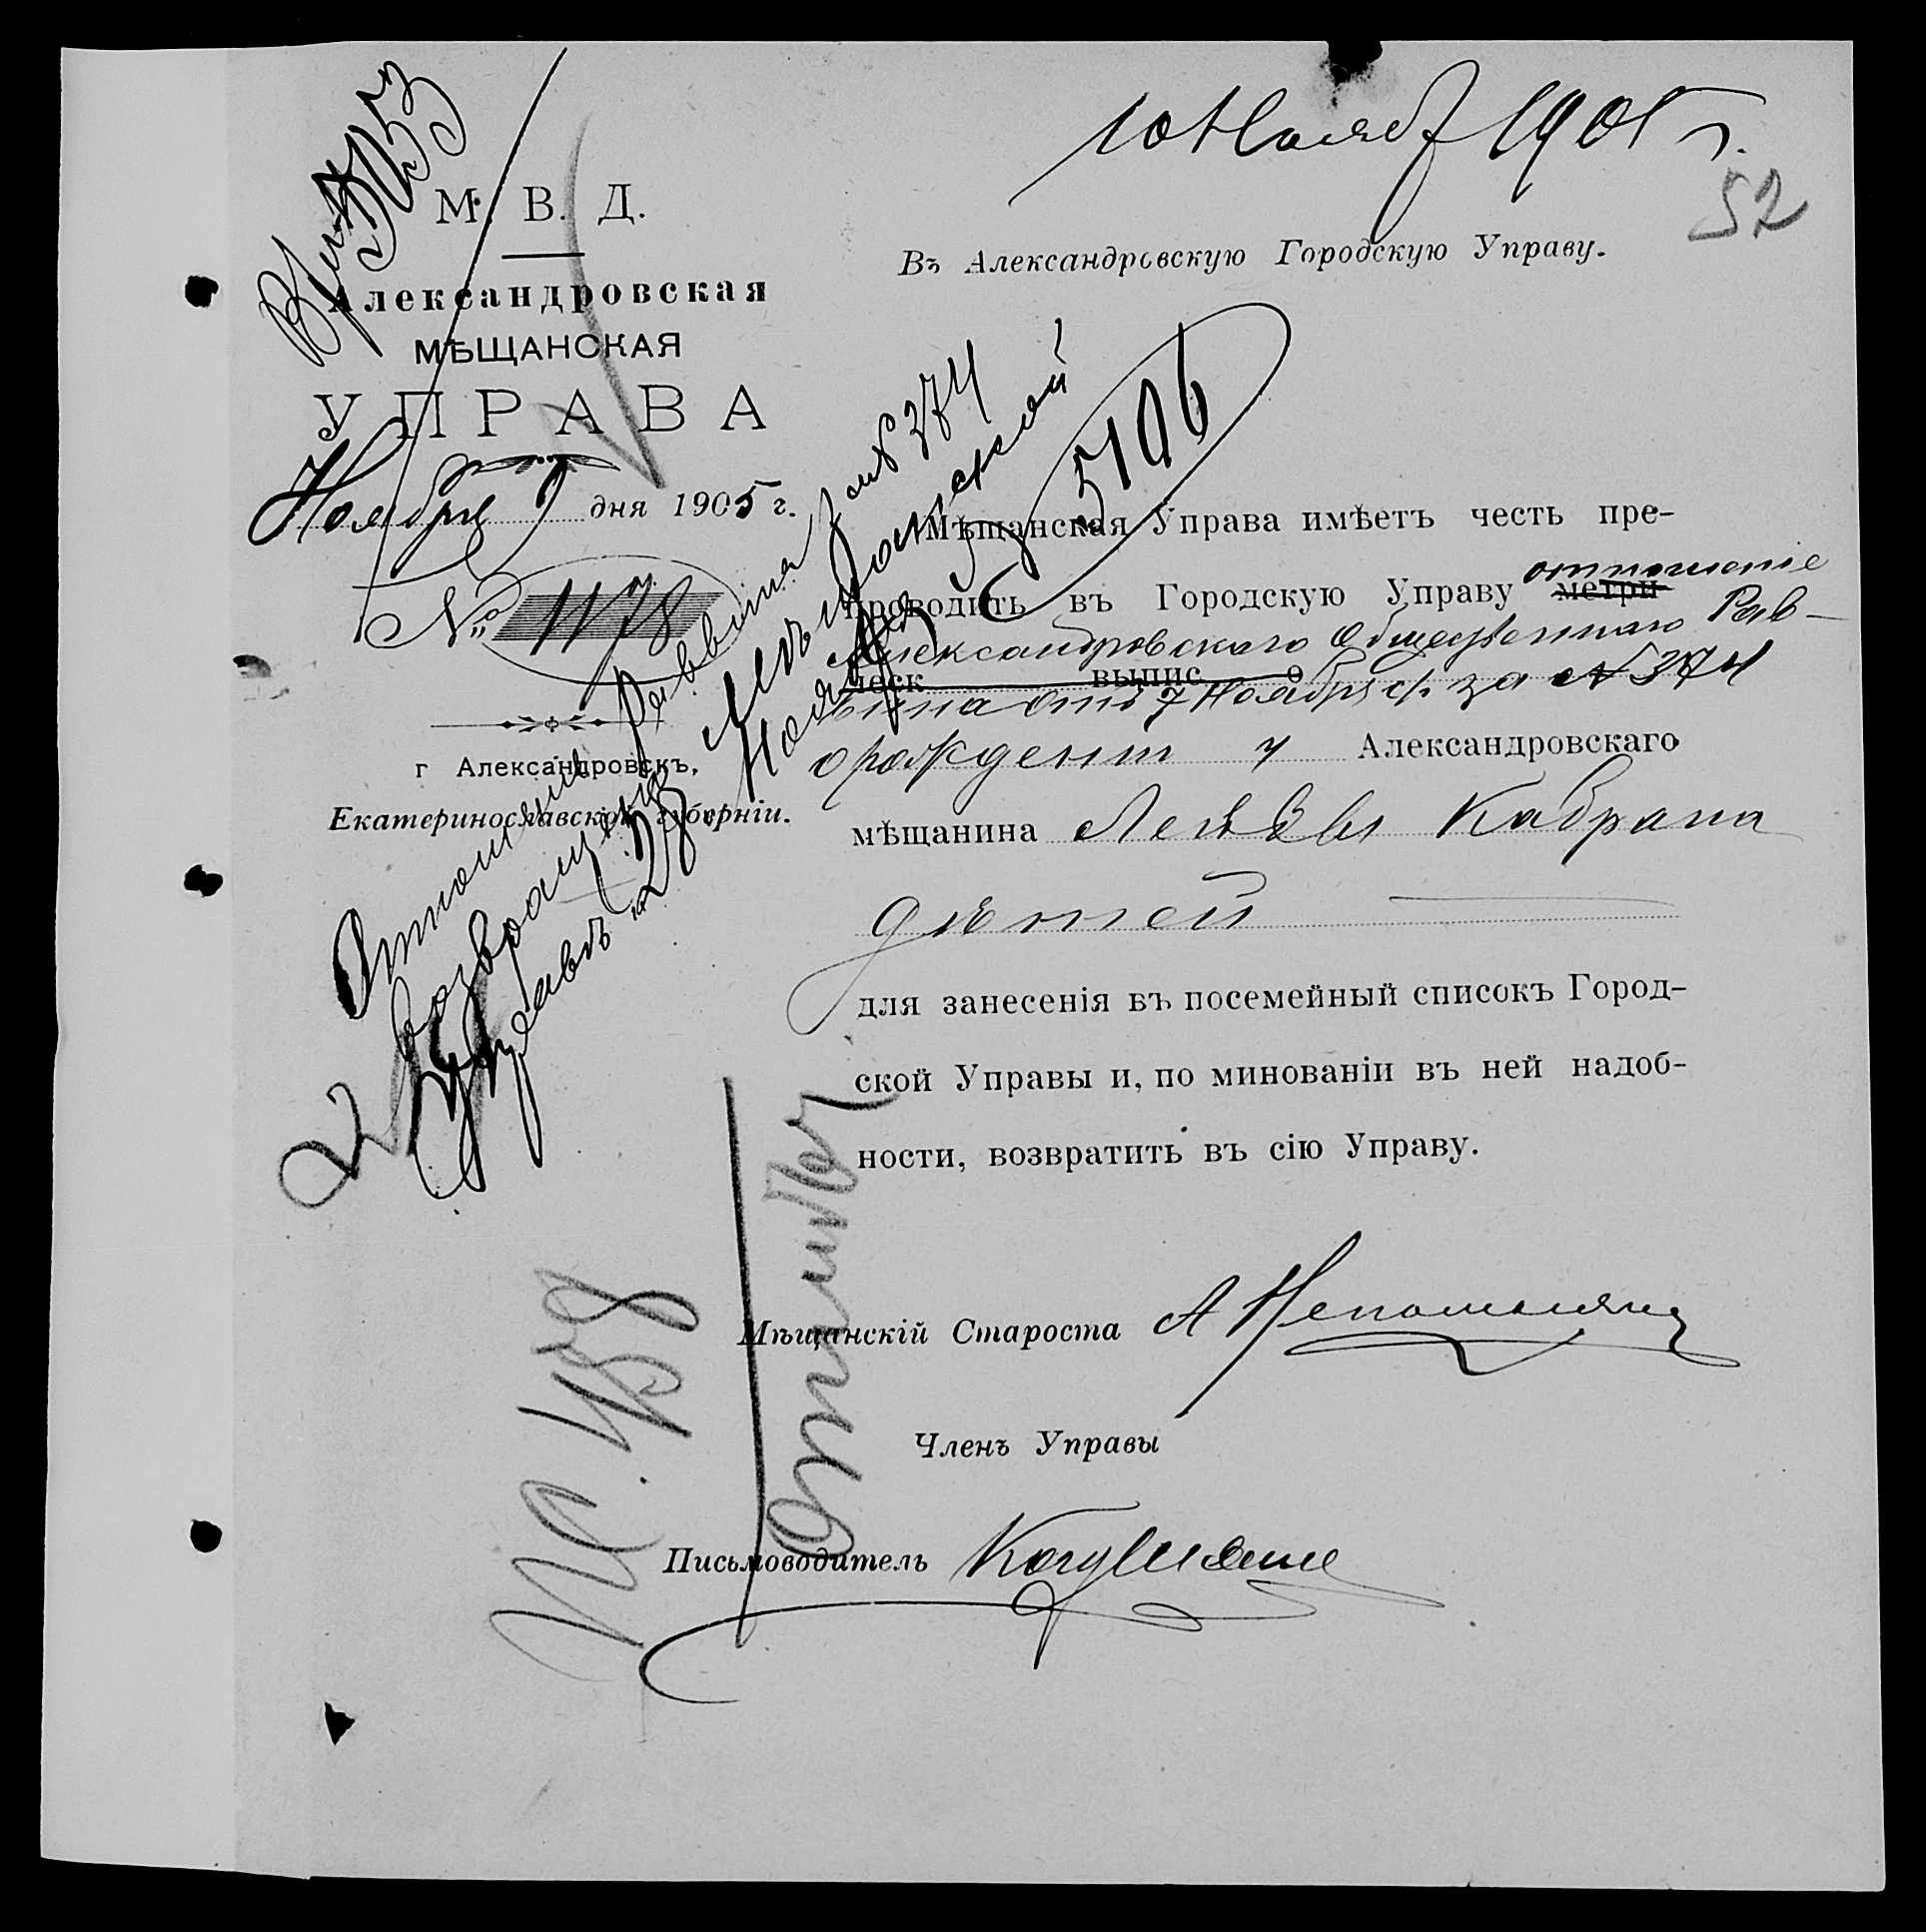 10 Ноября 1905 г.
52
М. В. Д.
Александровская
МѢЩАНСКАЯ
УПРАВА
Ноября 9 дня 1905 г.
№ 1178
г Александровскъ,
Екатеринославской губерніи.
Въ Александровскую Городскую Управу.
5106
Мѣщанская Управа имѣетъ честь пре-
проводить въ Городскую Управу метри отношеніе
Александровскаго Общественнаго Рав-
ческ выпис о
вина отъ 7 Ноября с/г за № 374
о рожденіи у Александровскаго
мѣщанина Кабрана
дѣтей
для занесенія въ посемейный списокъ Город-
ской Управы и, по минованіи въ ней надоб-
ности, возвратить въ сію Управу.
Мѣщанскій Староста А Непомнящ
Членъ Управы
Письмоводитель
Отношеніе Раввина за № 374
возвращено Мѣщанской
Управѣ 28 Ноября